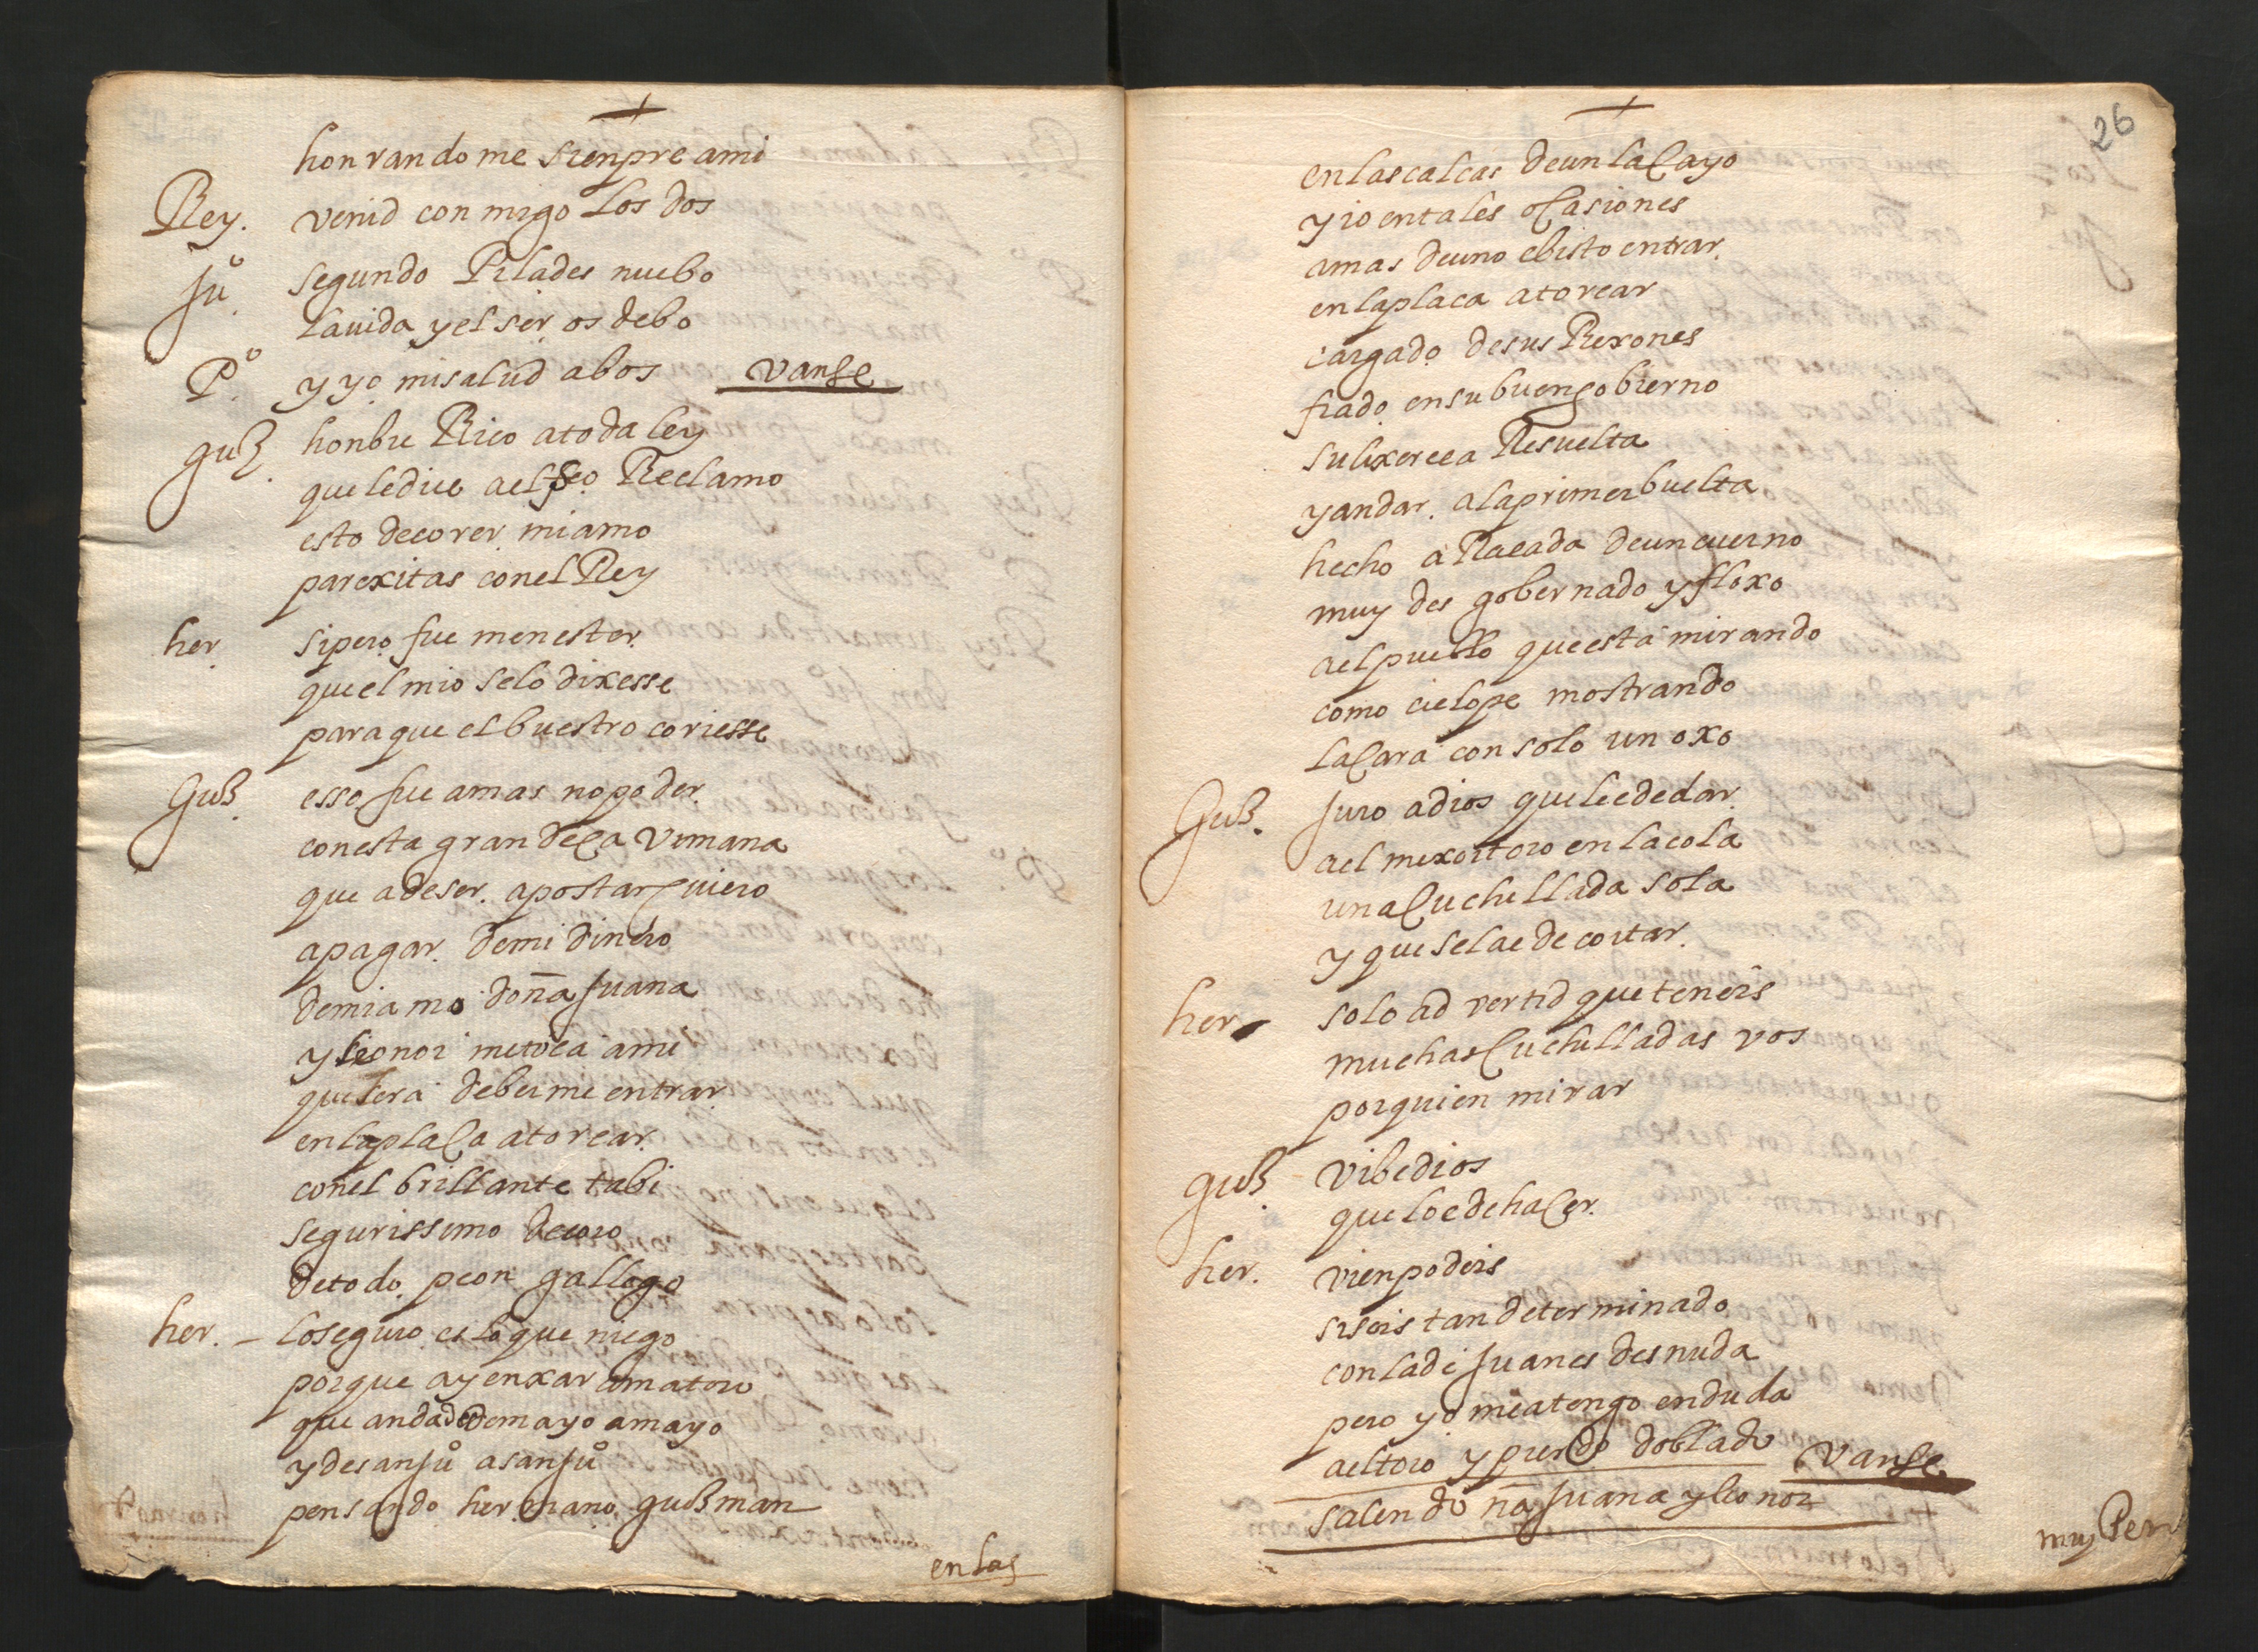 honrandome sienpre ami
Rey. venid con migo los dos
Juº. segundo Pilades nuebo
la uida y el ser os debo
Pº. y yo mi salud a bos vanse
guz. honbre Rico a toda ley
que le diue ael feo Reclamo
esto de corer mi amo
parexitas con el Rey
her. si pero fue menester
que el mio se lo dixesse
para que el buestro coriesse
Guz. esso fue a mas no poder
con esta grandeça vmana
que a de ser apostar quiero
a pagar de mi dinero
de mi amo doña Juana
y leonor me toca ami
que sera deberme entrar
en la plaça a torear
con el brillante tabi
segurissimo decoro
de todo peon gallego
her. – lo seguro es lo que niego
porque ay en xarama toro
que anda de mayo a mayo
y de san Juº a san Juº
pensando hermano guzman
en las
26
en las calcas de un lacayo
y io en tales ocasiones
a mas de uno e bisto entrar
en la placa a torear
cargado de sus Rexones
fiado en su buen gobierno
su lixereca Resuelta
y andar a la primer buelta
hecho a Racada de un cuerno
muy des gobernado y floxo
ael pueblo que esta mirando
como ciclope mostrando
la cara con solo un oxo
Guz. Juro a dios que le e de dar
ael mexor toro en la cola
una cuchillada sola
y que se la e de cortar
her – solo ad vertid que teneis
muchas cuchilladas vos
por quien mirar
guz. vibe dios
que lo e de hacer
her. vien podeis
si seis tan determinado
con la de Juanes desnuda
pero yo me atengo en duda
ael toro y puro doblado vanse
salen doña Juana y leonor
muy